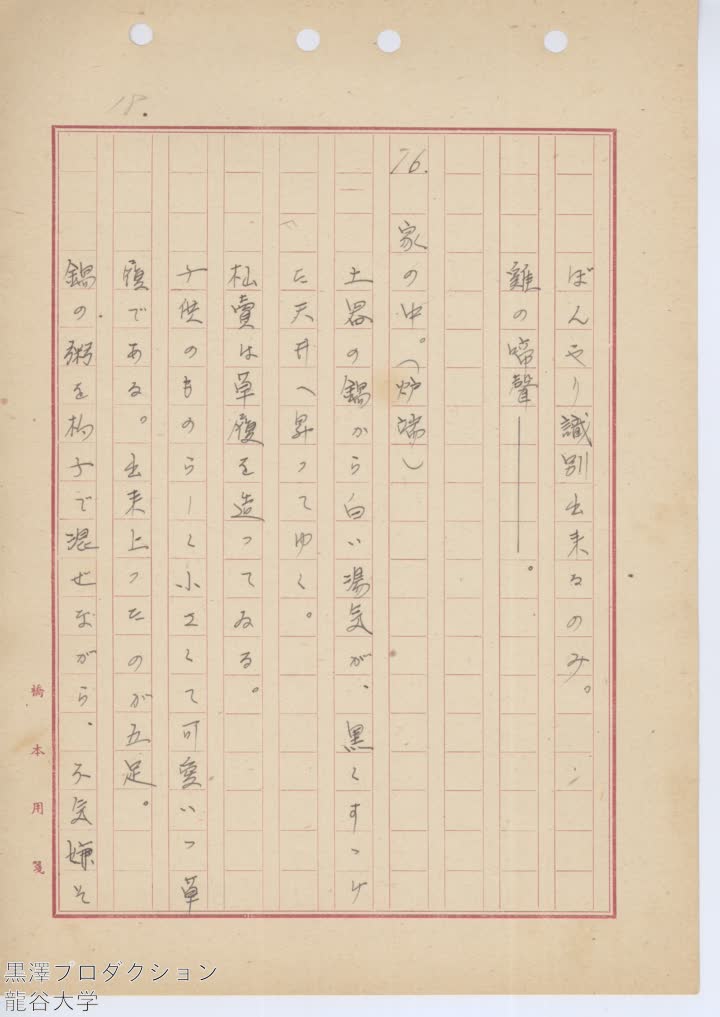 18.
ぼんやり識別出来るのみ。
雞の啼聲――――。
76. 家の中。(炉端)
土器の鍋から白い湯気が、黒くすゝけ
た天井へ昇ってゆく。
杣賣は草履を造ってゐる。
子供のものらしく小さくて可愛いゝ草
履である。出来上ったのが五足。
鍋の粥を杓子で混ぜながら、不気嫌そ
橋本用箋
黒澤プロダクション
龍谷大学